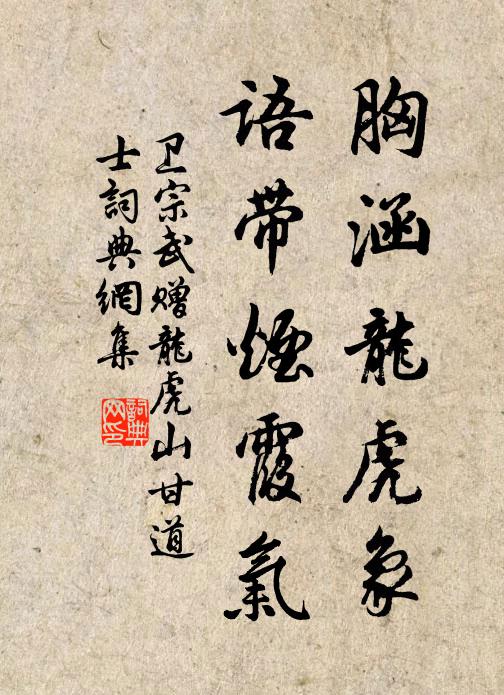 胸涵龍虎象
語帶煙霞氣
卫宗武赠龍虎山甘道
士詞典網集
詞典
网印